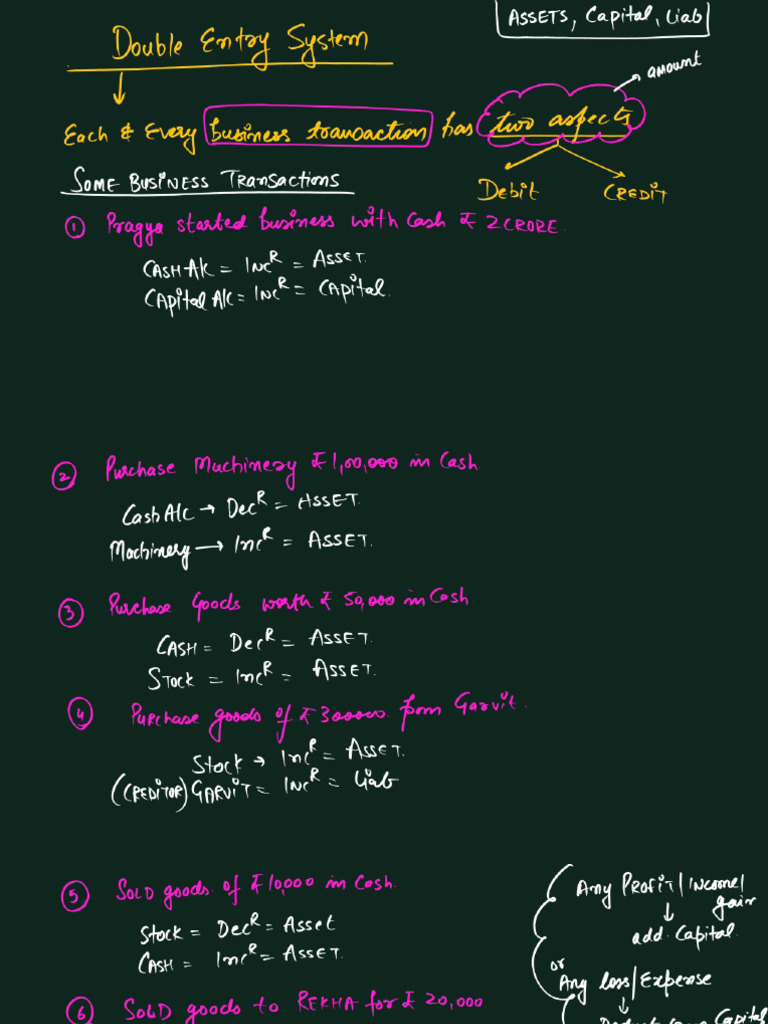 ASSETS, Capital, Liab
Double Entry System
amount
Each & Every business transaction has two aspects
Debit CREDIT
SOME BUSINESS TRANSACTIONS
① Pragya started business with Cash ₹ 2 CRORE.
CASH A/c = IncR = ASSET.
CAPital A/c = IncR = CAPital.
② Purchase Machinery ₹ 1,00,000 in Cash
Cash A/c → DecR = ASSET.
Machinery → IncR = ASSET.
③ Purchase Goods worth ₹ 50,000 in Cash
CASH = DecR = ASSET.
STOCK = IncR = ASSET.
④ Purchase goods of ₹ 300000 from Garvit.
Stock → IncR = ASSET.
(CREDITOR) GARVIT = IncR = Liab
⑤ SOLD goods of ₹ 10,000 in Cash.
Stock = DecR = Asset
CASH = IncR = ASSET.
Any PROFIT/Income/
gain
↓
add Capital.
or
Any loss/Expense
↓
⑥ SOLD goods to REKHA for ₹ 20,000
Capital